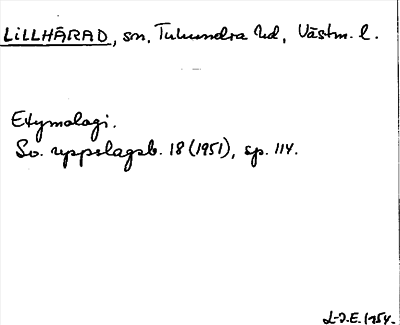 LILLHÄRAD, sn, Tuhundra hd, Västm. l.
Etymologi.
Sv. uppslagsb. 18 (1951), sp. 114.
L-I.E. 1954.